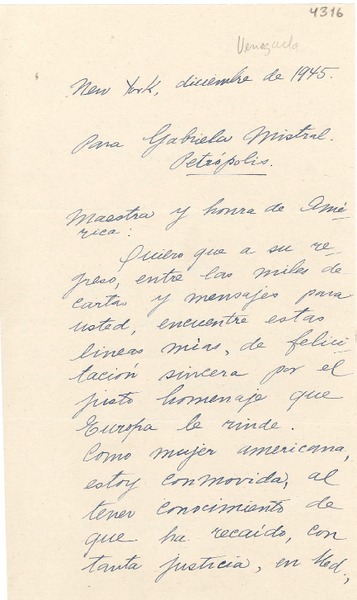 4316
Venezuela
New York, diciembre de 1945.
Para Gabriela Mistral.
Petrópolis.
Maestra y honra de Amé-
rica:
Quiero que a su re-
greso, entre las miles de
cartas y mensajes para
usted, encuentre estas
lineas mías, de felici-
tación sincera por el
justo homenaje que
Europa le rinde.
Como mujer americana,
estoy conmovida, al
tener conocimiento de
que ha recaído, con
tanta justicia, en Ud.,